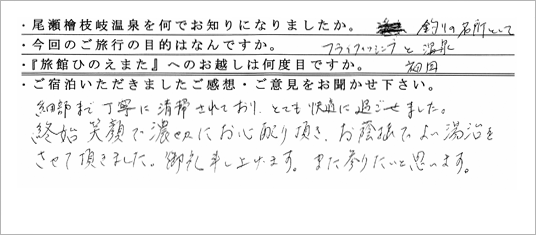 ・尾瀬檜枝岐温泉を何でお知りになりましたか。 釣りの名所として
・今回のご旅行の目的はなんですか。 フライフィッシングと温泉
・『旅館ひのえまた』へのお越しは何度目ですか。 初回
・ご宿泊いただきましたご感想・ご意見をお聞かせ下さい。
細部まで丁寧に清掃されており、とても快適に過ごせました。
終始笑顔で濃やかにお心配り頂き、お蔭様でよい湯治を
させて頂きました。御礼申し上げます。また参りたいと思います。